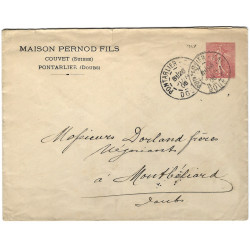 MAISON PERNOD FILS
COUVET (Suisse)
PONTARLIER (Doubs)
PONTARLIER
Messieurs Dorland frères
Négociants
à Montbéliard
Doubs